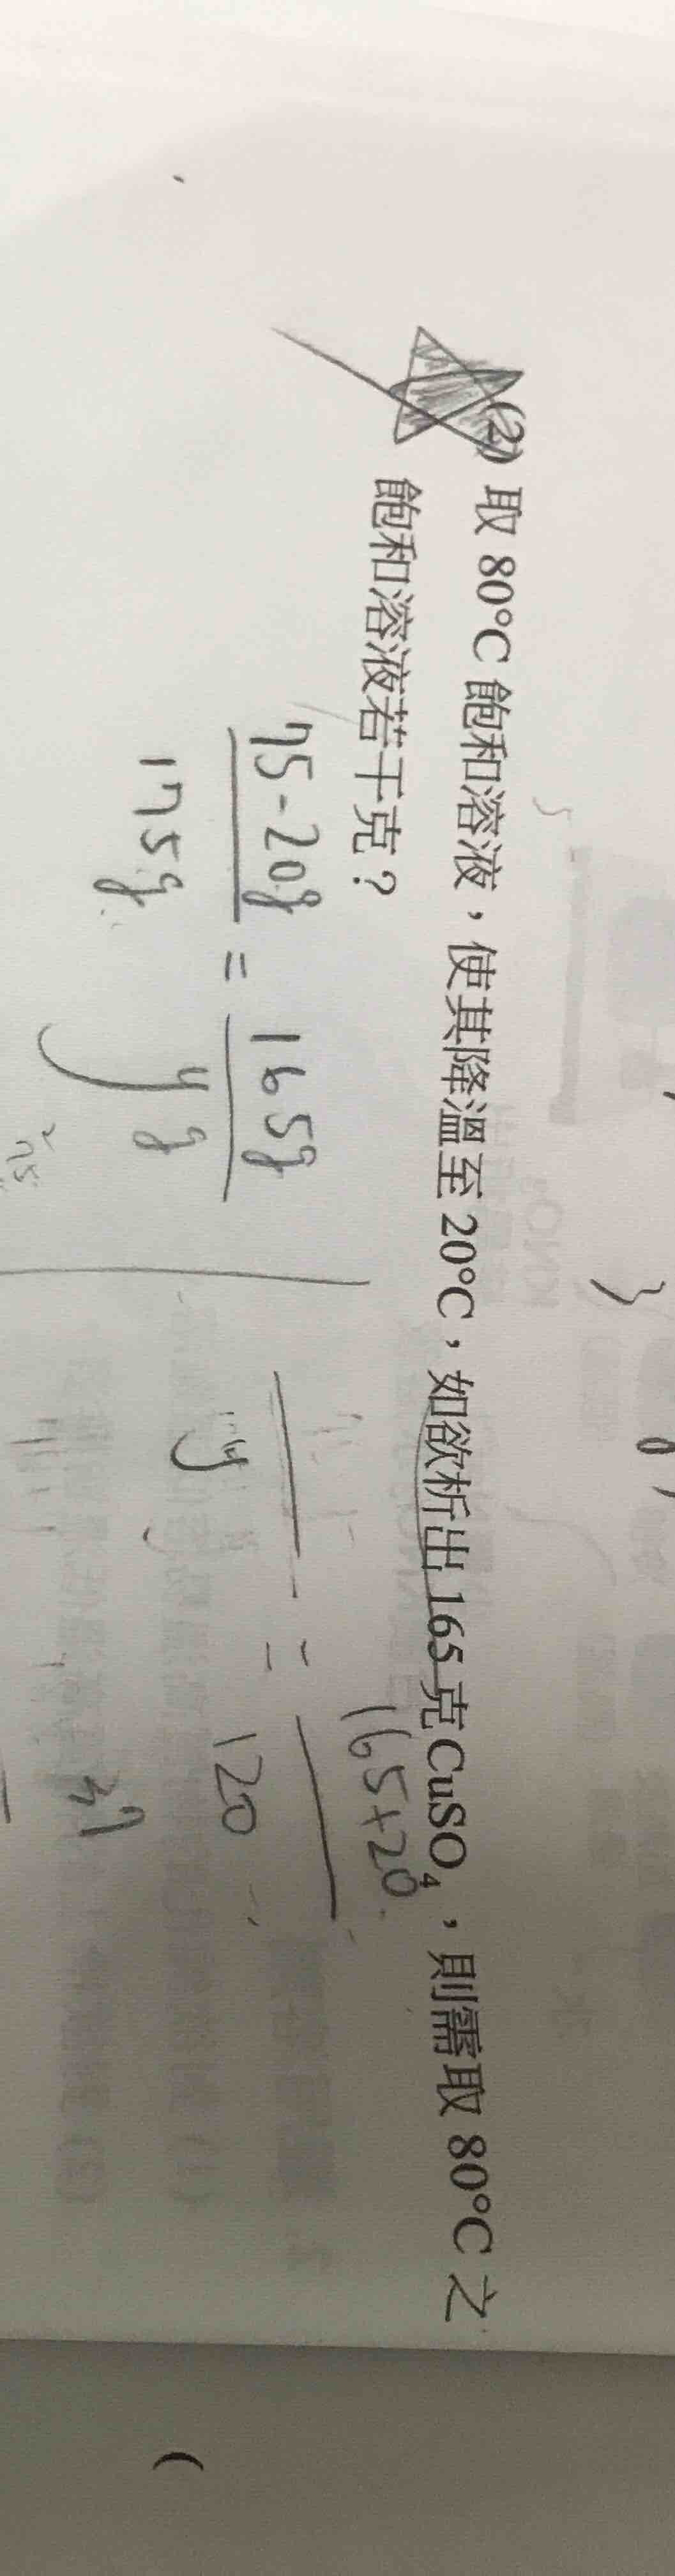 (2) 取 80°C 飽和溶液，使其降溫至 20°C，如欲析出 165 克 CuSO₄，則需取 80°C 之
飽和溶液若干克？
75-20g
175g
=
165g
yg
y
=
165+20
120